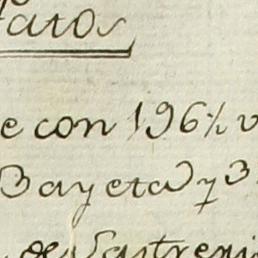 atos
e con 196½ v
Bayeta y 3
de Sastreri